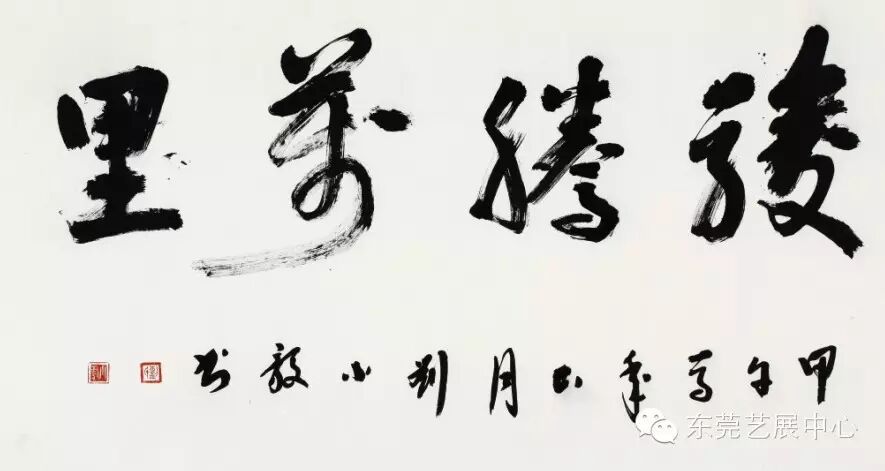 駿騰萬里
甲午马年正月刘小毅书
东莞艺展中心